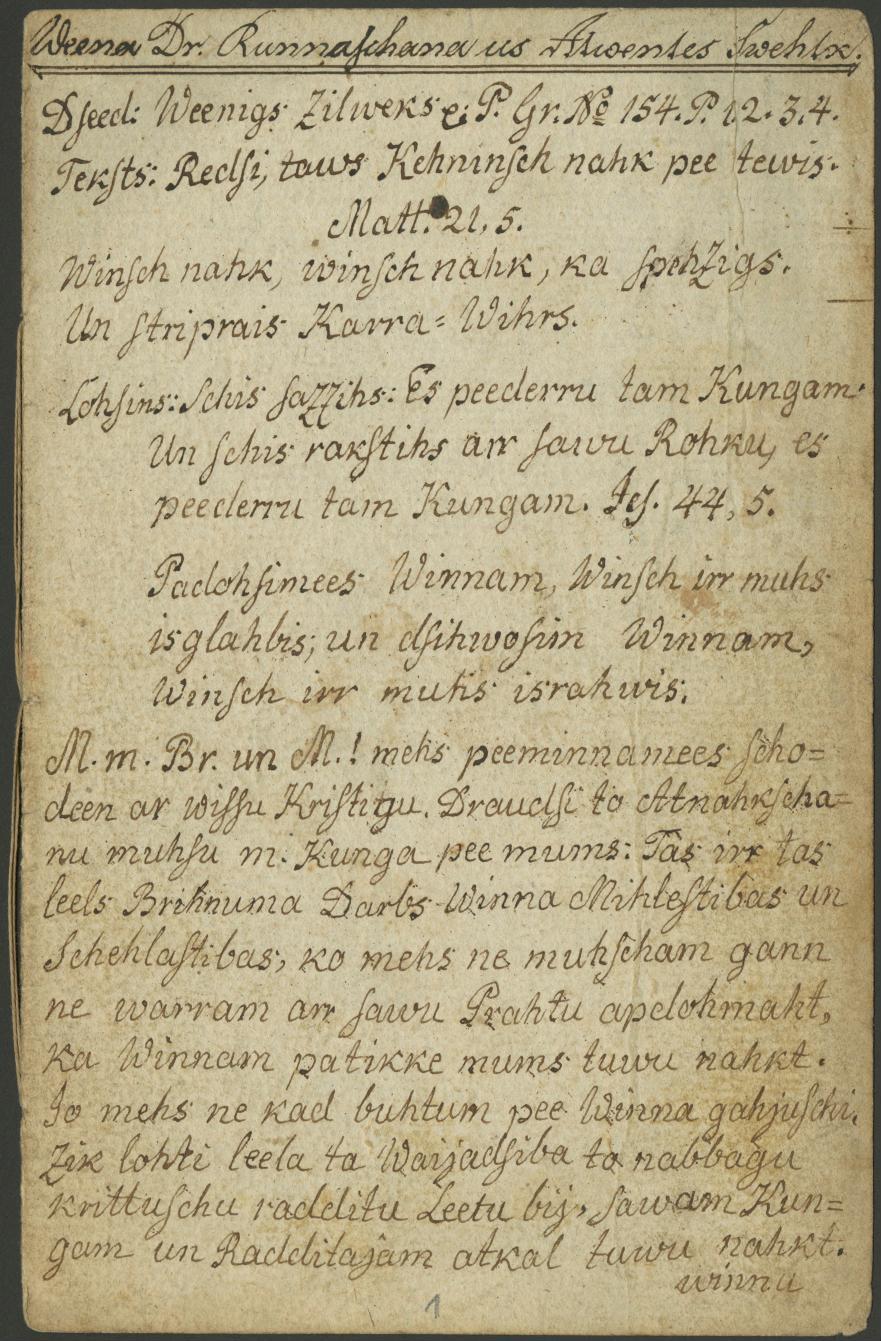 Weena Dr. Runnaschana us Atwentes Swehtk.
Dseed: Weenigs Zilweks ꝛc. P. Gr. No 154. P. 1.2.3.4.
Teksts: Redsi, taws Kehninsch nahk pee tewis.
Matt. 21, 5.
Winsch nahk, winsch nahk, ka spehzigs.
Un stiprais Karra= Wihrs.
Lohsins: Schis sazzihs: Es peederru tam Kungam.
Un schis rakstihs arr sawu Rohku, es
peederru tam Kungam. Jes. 44, 5.
Padohsimees Winnam, Winsch irr muhs
isglahbis; un dsihwosim Winnam,
Winsch irr muhs israhwis.
M. m. Br. un M.! mehs peeminnamees scho=
deen ar wissu Kristigu. Draudsi to Atnahkscha=
nu muhsu m. Kunga pee mums: Tas irr tas
leels Brihnuma Darbs Winna Mihlestibas un
Schehlastibas, ko mehs ne muhscham gann
ne warram arr sawu Prahtu apdohmaht,
ka Winnam patikke mums tuwu nahkt.
Jo mehs ne kad buhtum pee Winna gahjuschi.
Zik lohti leela ta Waijadsiba to nabbagu
krittuschu radditu Leetu bij, sawam Kun=
gam un Radditajam atkal tuwu nahkt.
winnu
1